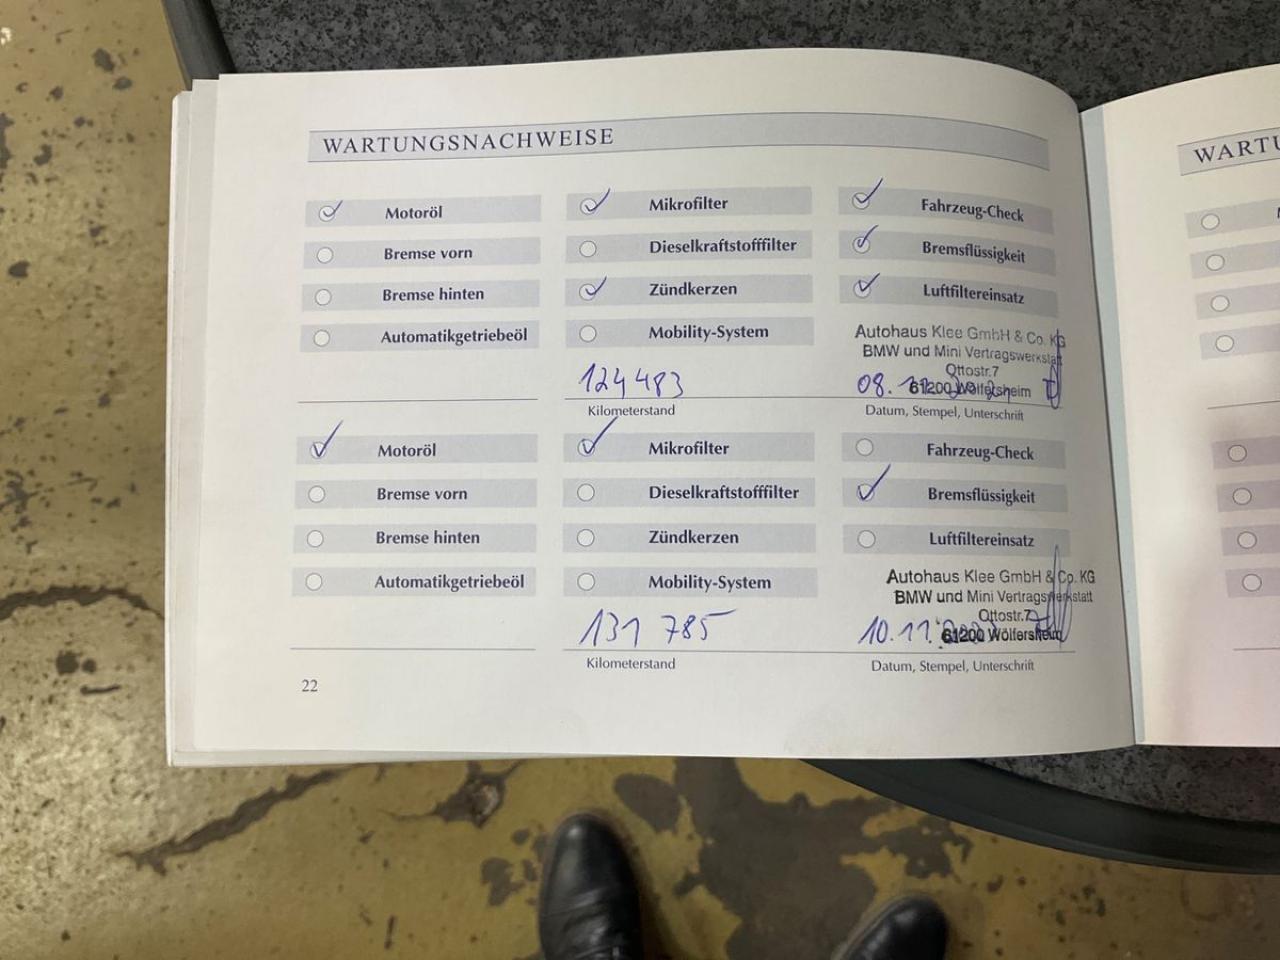 WARTUNGSNACHWEISE
WARTU
Motoröl
Mikrofilter
Fahrzeug-Check
Bremse vorn
Dieselkraftstofffilter
Bremsflüssigkeit
Bremse hinten
Zündkerzen
Luftfiltereinsatz
Automatikgetriebeöl
Mobility-System
Autohaus Klee GmbH & Co. KG
BMW und Mini Vertragswerkstatt
Ottostr.7
61200 Wölfersheim
124483
08.
Kilometerstand
Datum, Stempel, Unterschrift
Motoröl
Mikrofilter
Fahrzeug-Check
Bremse vorn
Dieselkraftstofffilter
Bremsflüssigkeit
Bremse hinten
Zündkerzen
Luftfiltereinsatz
Automatikgetriebeöl
Mobility-System
Autohaus Klee GmbH & Co. KG
BMW und Mini Vertragswerkstatt
Ottostr.7
61200 Wölfersheim
131 785
10.11.
Kilometerstand
Datum, Stempel, Unterschrift
22